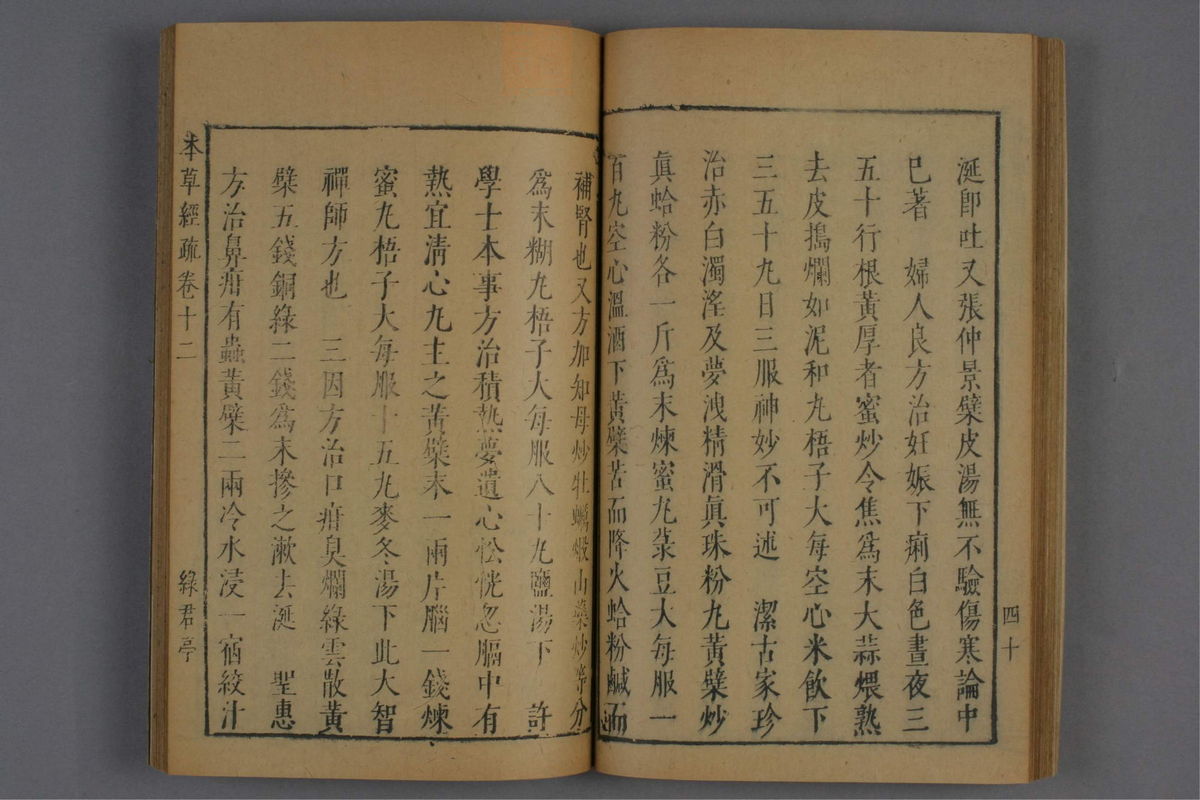 涎卽吐又張仲景檗皮湯無不驗傷寒論中
已著　婦人良方治妊娠下痢白色晝夜三
五十行根黃厚者蜜炒令焦爲末大蒜煨熟
去皮搗爛如泥和丸梧子大每空心米飮下
三五十九日三服神妙不可述　潔古家珍
治赤白濁淫及夢洩精滑眞珠粉丸黃檗炒
眞蛤粉各一斤爲末煉蜜丸菉豆大每服一
百九空心溫酒下黃檗苦而降火蛤粉鹹而
四十
補腎也又方加知母炒牡蠣煅山藥炒等分
爲末糊丸梧子大每服八十九鹽湯下　許
學士本事方治積熱夢遺心忪恍忽膈中有
熱宜清心丸主之黃檗末一兩片腦一錢煉
蜜丸梧子大每服十五丸麥冬湯下此大智
禪師方也　三因方治口疳臭爛綠雲散黃
檗五錢銅綠二錢爲末摻之漱去涎　聖惠
方治鼻疳有蟲黃檗二兩冷水浸一宿絞汁
本草經疏卷十二
綠君亭